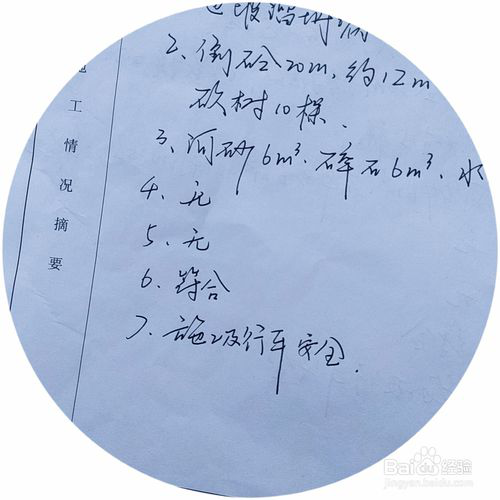 2、倒砼20m,约12m
砍树10棵.
3、河砂6m³、碎石6m³、水
4、无
5、无
6、符合
7、施工及行车安全.
工情况摘要
Baidu经验
jingyan.baidu.com